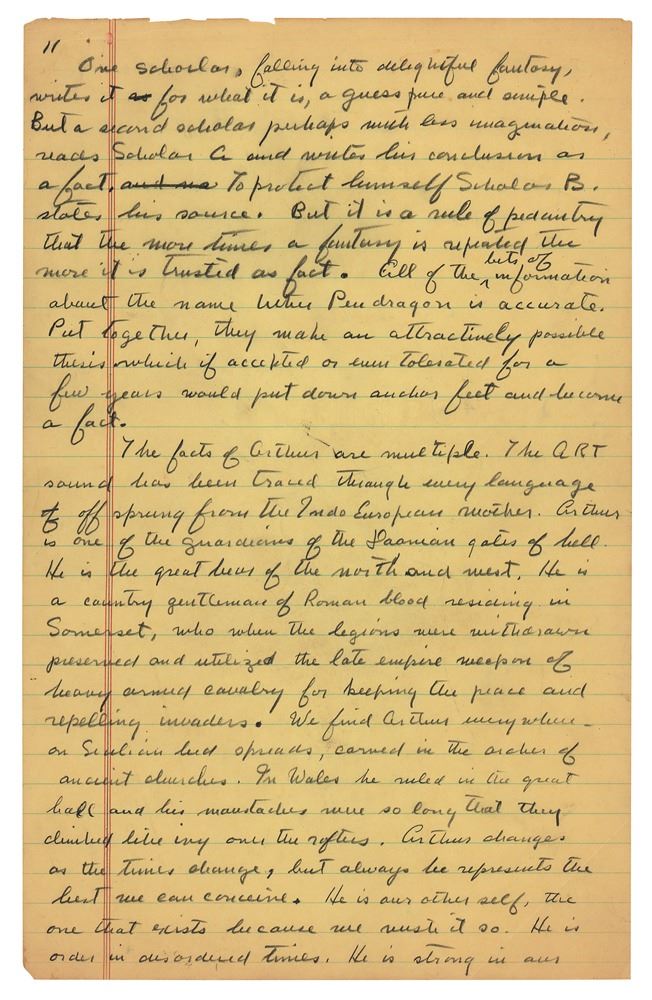 11
One scholar, falling into delightful fantasy,
writes it as for what it is, a guess pure and simple.
But a second scholar perhaps with less imagination,
reads Scholar A and writes his conclusion as
a fact, and na To protect himself Scholar B.
states his source. But it is a rule of pedantry
that the more times a fantasy is repeated the
more it is trusted as fact. All of the bits of information
about the name Uther Pendragon is accurate.
Put together, they make an attractively possible
thesis which if accepted or even tolerated for a
few years would put down anchor feet and become
a fact.
The facts of Arthur are multiple. The ART
sound has been traced through every language
of off sprung from the Indo European mother. Arthur
is one of the guardians of the gates of hell.
He is the great bear of the north and west. He is
a country gentleman of Roman blood residing in
Somerset, who when the legions were withdrawn
preserved and utilized the late empire weapon of
heavy armed cavalry for keeping the peace and
repelling invaders. We find Arthur everywhere -
on Sicilian bed spreads, carved in the arches of
ancient churches. In Wales he ruled in the great
hall and his moustaches were so long that they
climbed like ivy over the rafters. Arthur changes
as the times change, but always he represents the
best we can conceive. He is our other self, the
one that exists because we wish it so. He is
order in disordered times. He is strong in our